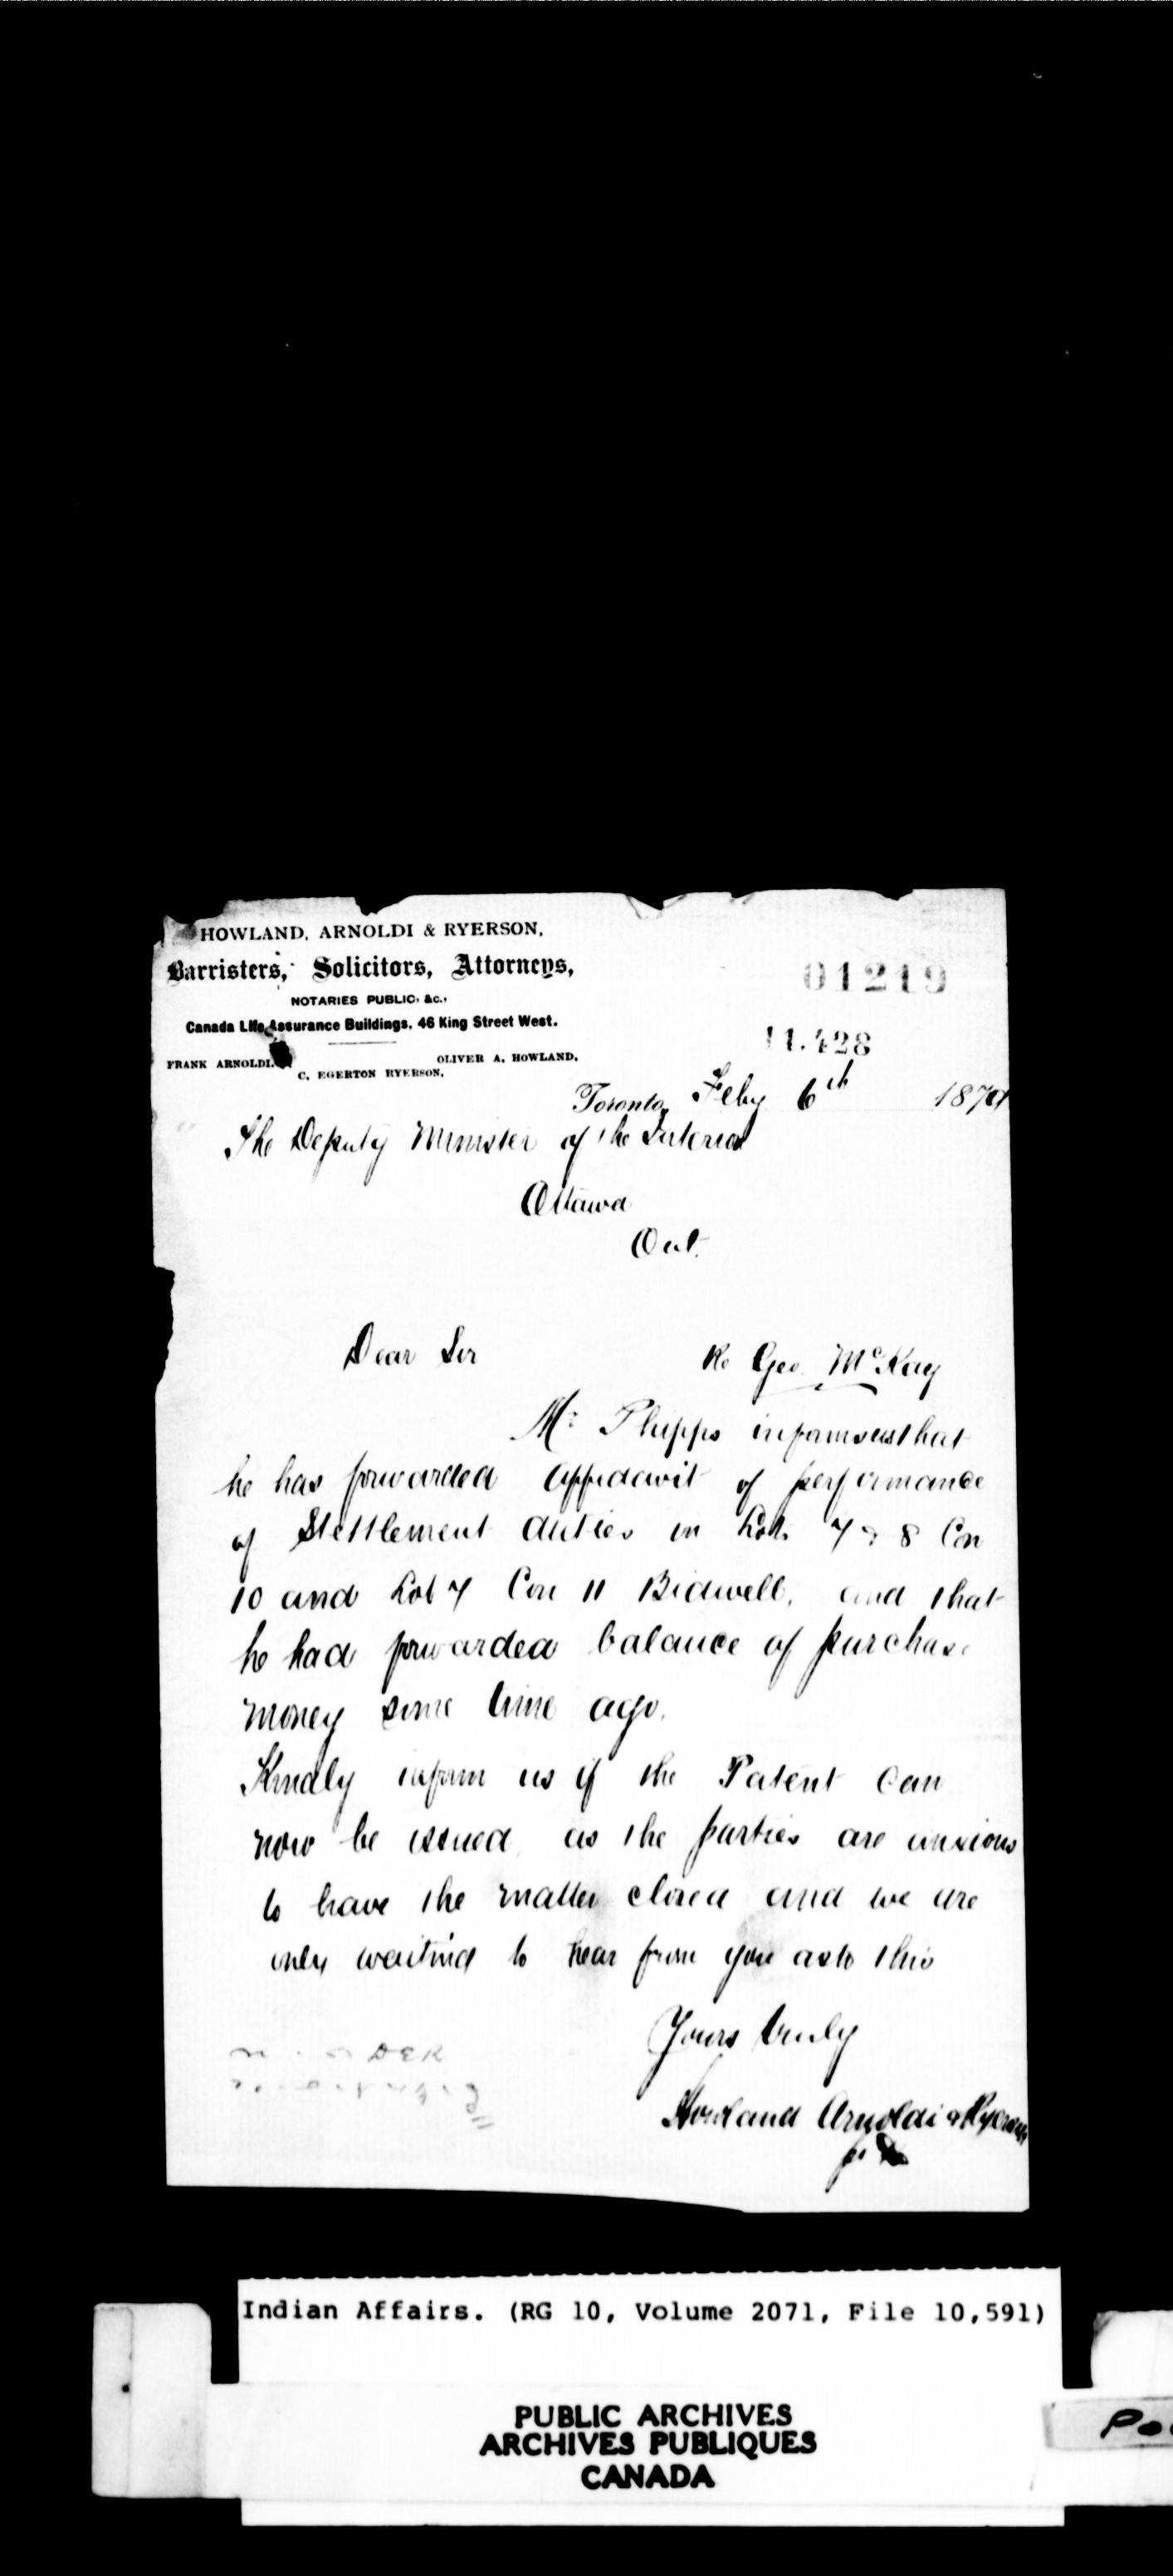 HOWLAND, ARNOLDI & RYERSON,
Barristers, Solicitors, Attorneys,
NOTARIES PUBLIC, &c.,
Canada Life Assurance Buildings, 46 King Street West.
FRANK ARNOLDI. OLIVER A. HOWLAND.
C. EGERTON RYERSON.
01219
11.428
Toronto, Feby 6th 1879
The Deputy Minister of the Interior
Ottawa
Ont.
Dear Sir Re Geo. McKay
Mr Phipps informs us that
he has forwarded affidavit of performance
of Settlement duties in Lots 7 & 8 Con
10 and Lot 7 Con 11 Bidwell, and that
he had forwarded balance of purchase
money some time ago.
Kindly inform us if the Patent can
now be issued, as the parties are anxious
to have the matter closed and we are
only waiting to hear from you as to this
Yours truly
Howland Arnoldi & Ryerson
Indian Affairs. (RG 10, Volume 2071, File 10,591)
PUBLIC ARCHIVES
ARCHIVES PUBLIQUES
CANADA